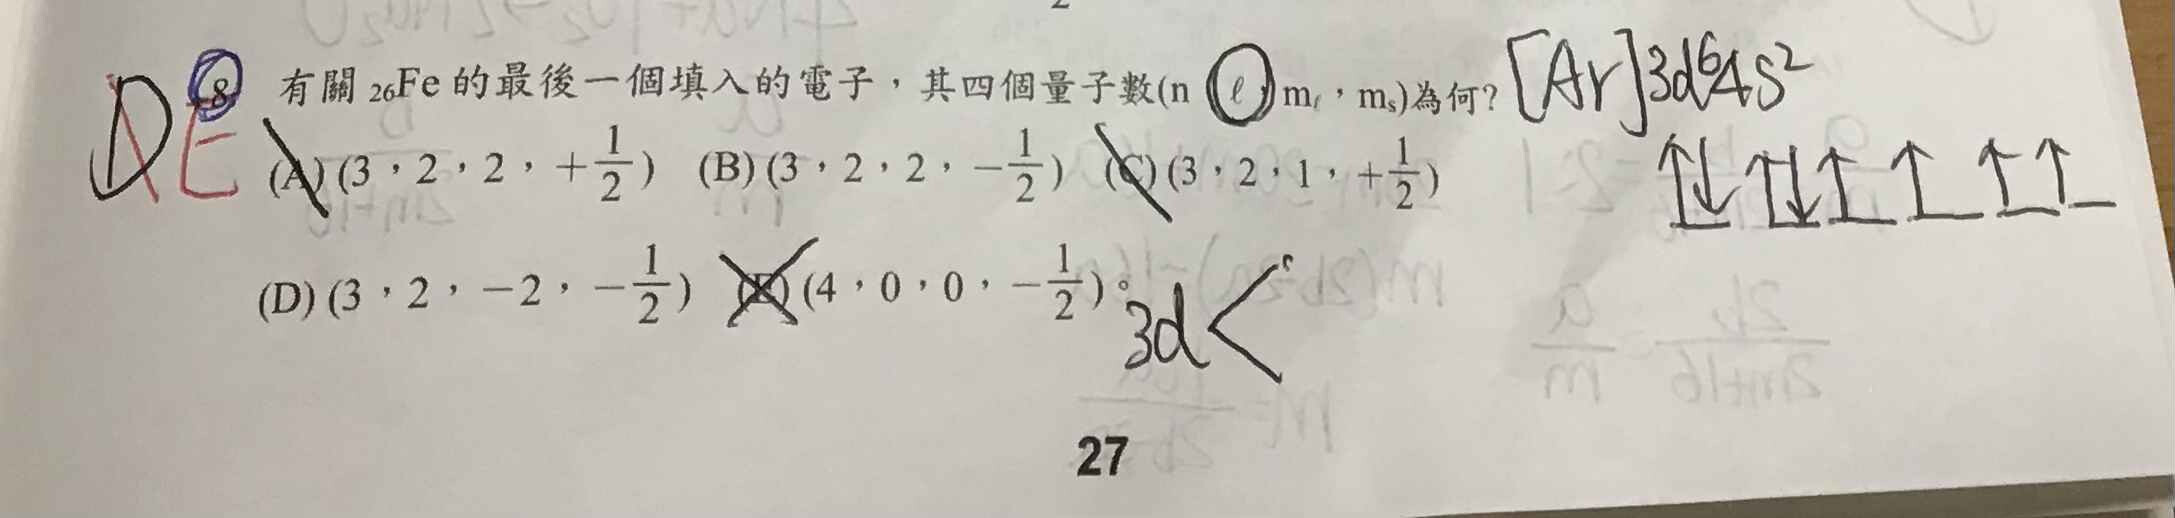 DE 8 有關 ₂₆Fe 的最後一個填入的電子，其四個量子數(n ℓ, mℓ，mₛ)為何? [Ar]3d⁶4s²
(A)(3，2，2，+1/2) (B)(3，2，2，-1/2) (C)(3，2，1，+1/2) ↑↓ ↑↓ ↑ ↑ ↑ ↑
(D)(3，2，-2，-1/2) (E)(4，0，0，-1/2)。
3d<
27